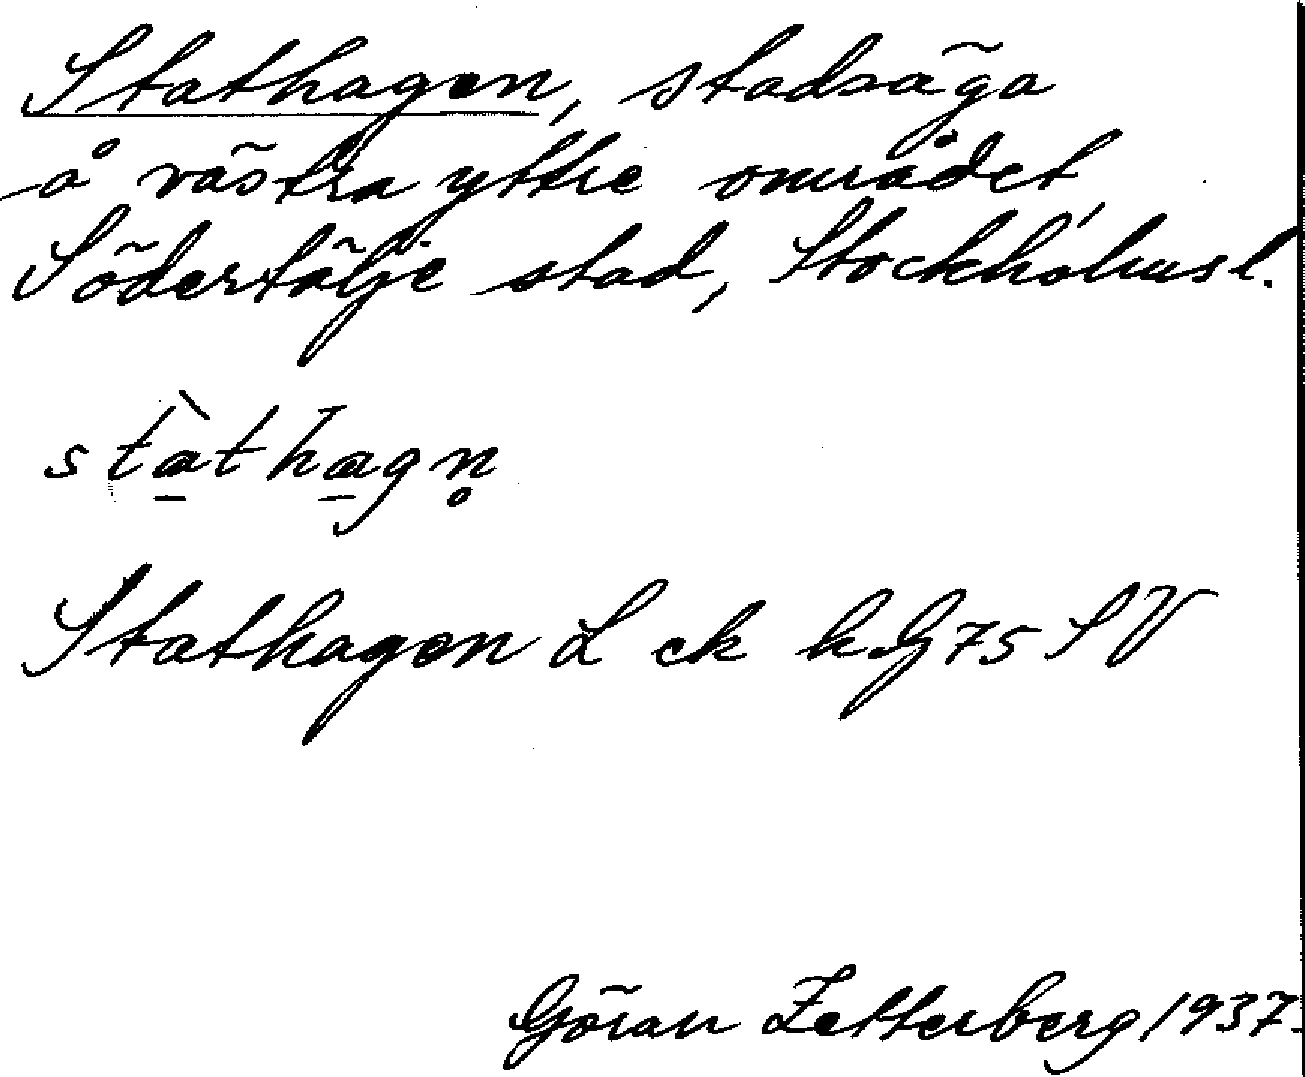 Stathagen, stadsäga
å västra yttre området,
Södertälje stad, Stockholmsl.
stàthagn̥
Stathagen L ck kG 75 SV
Göran Zetterberg 1937